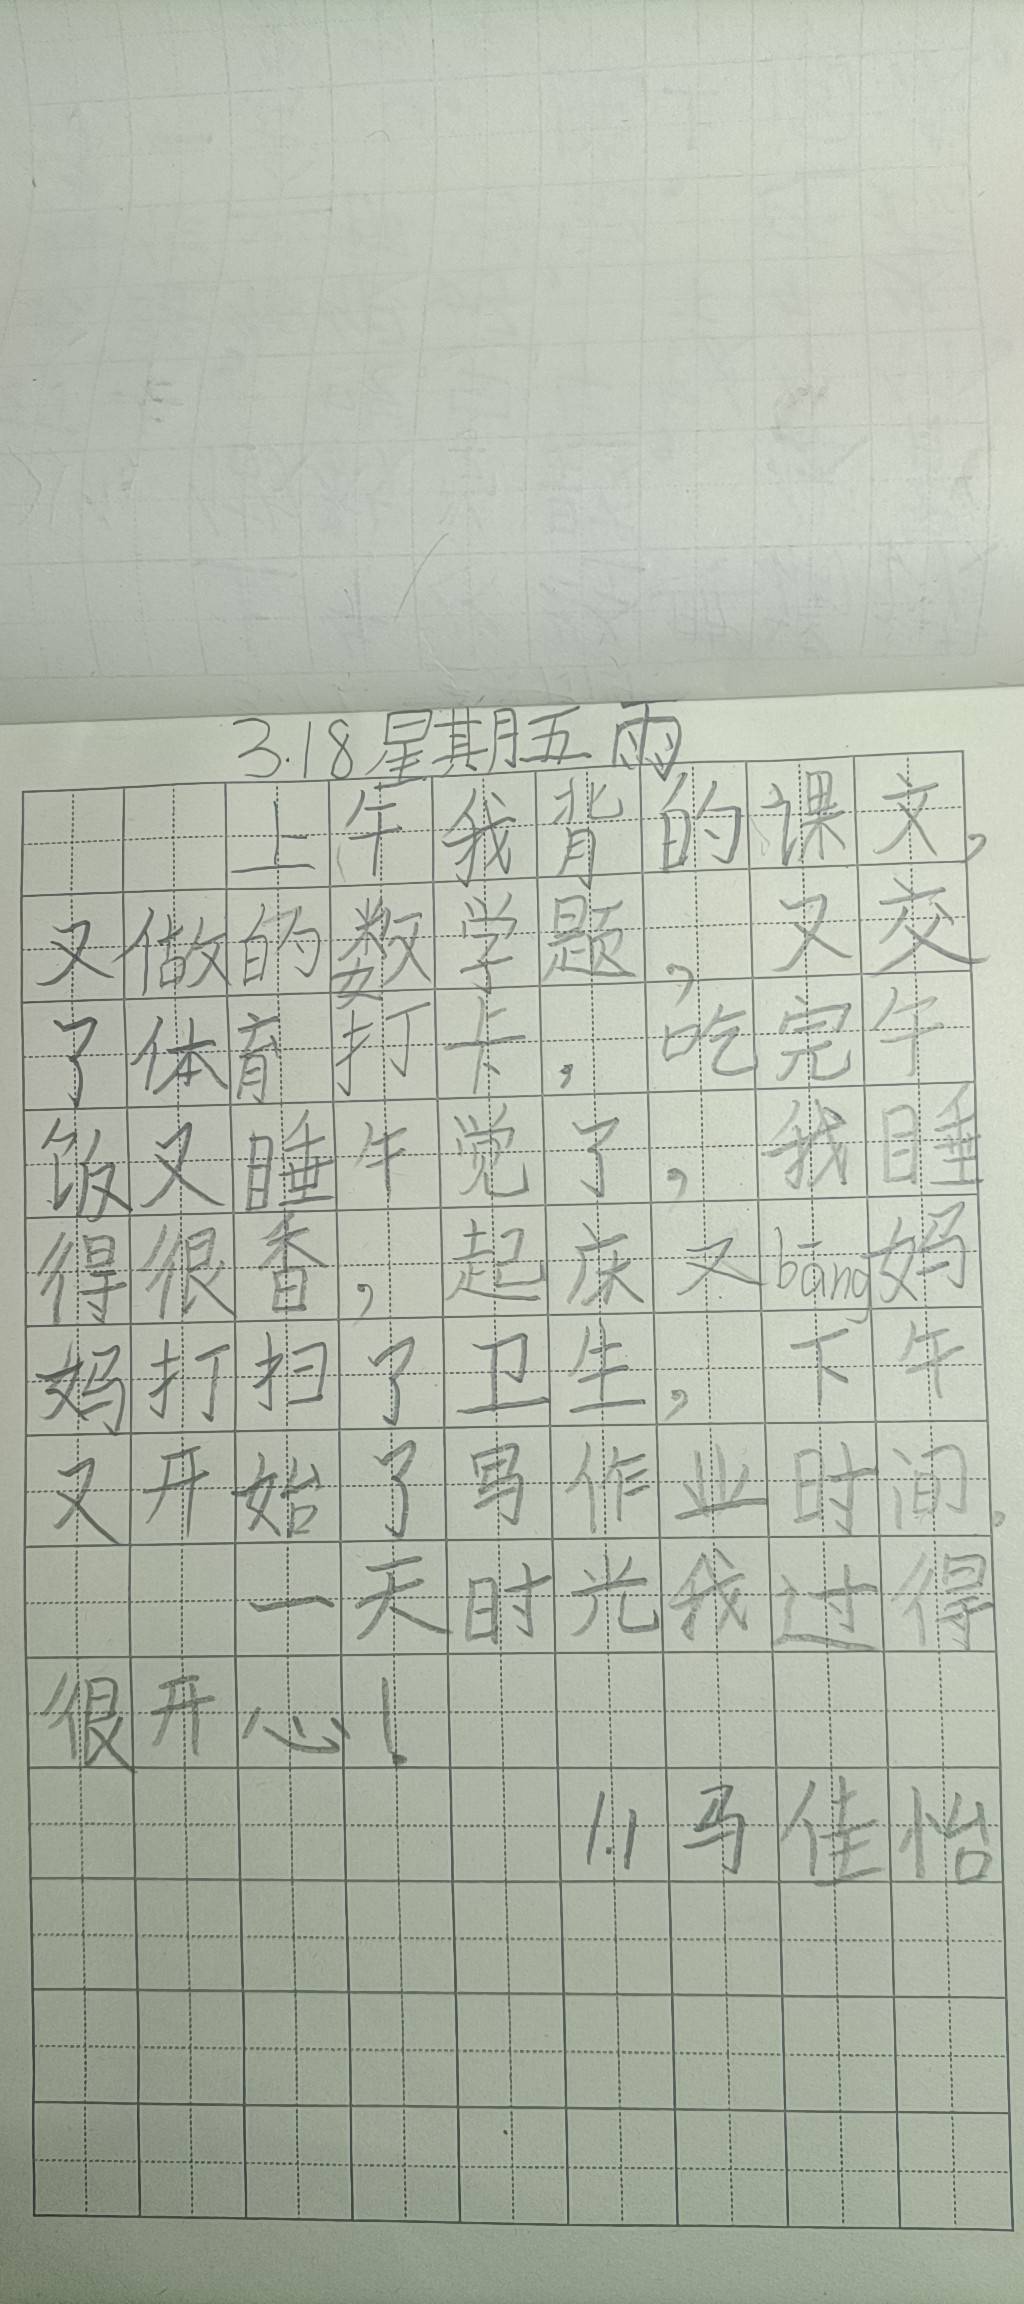 3.18星期五 雨
上午我背的课文，
又做的数学题，又交
了体育打卡，吃完午
饭又睡午觉了，我睡
得很香，起床又bāng妈
妈打扫了卫生，下午
又开始了写作业时间，
一天时光我过得
很开心！
1.1马佳怡